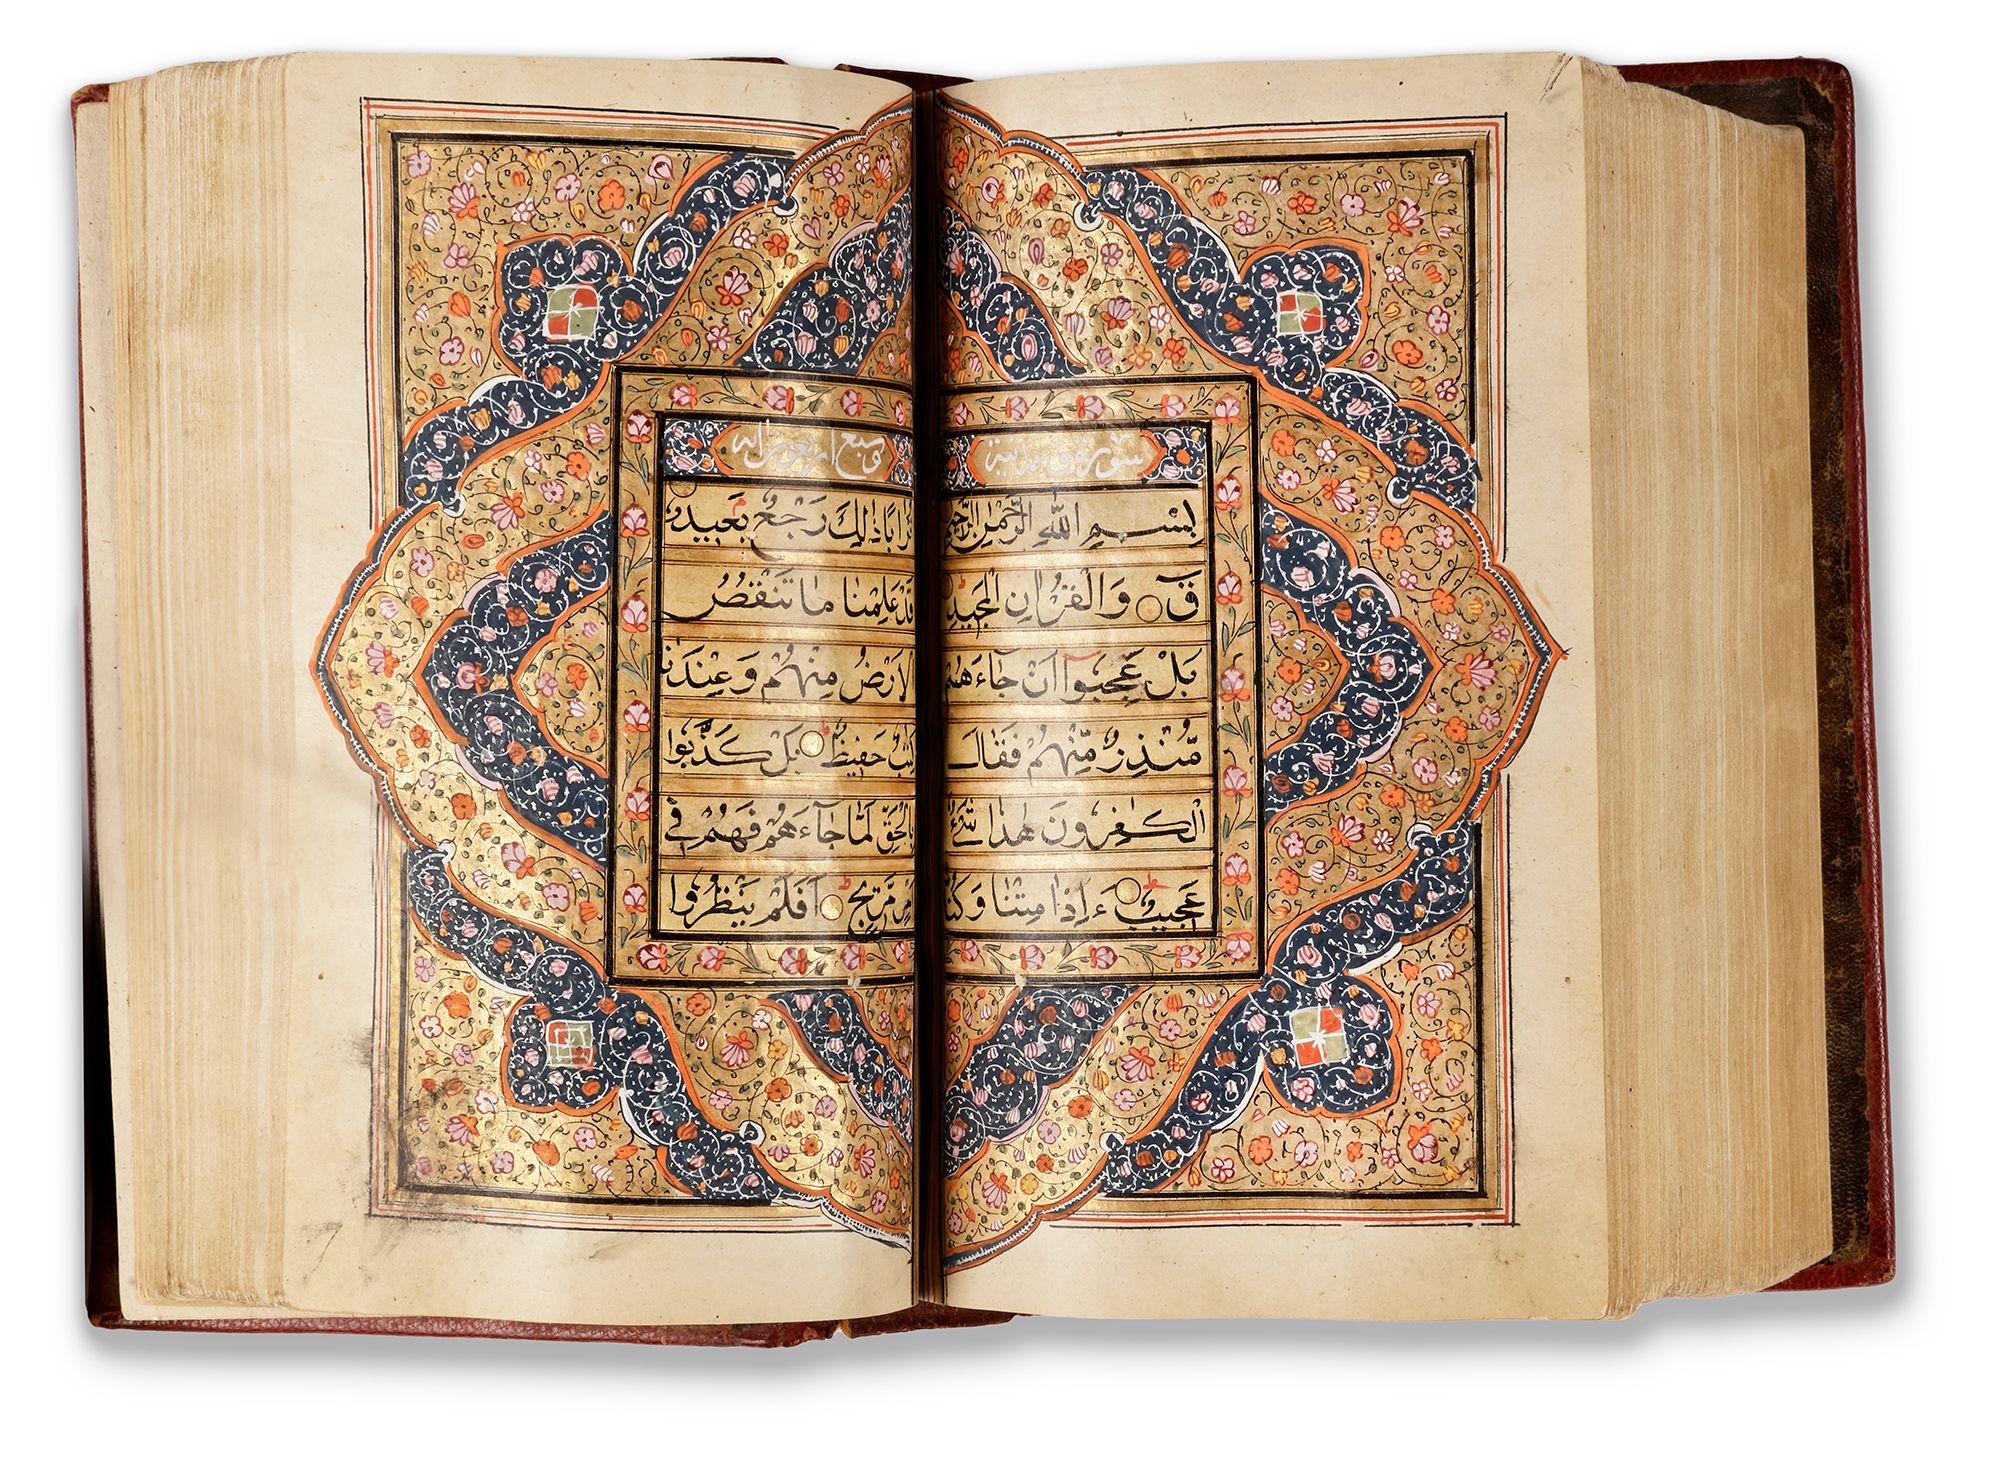 سورة ق مدنية
بِسْمِ اللّٰهِ الرَّحْمٰنِ الرَّحِيمِ
قٓ وَالْقُرْاٰنِ الْمَجِيدِ
بَلْ عَجِبُوا اَنْ جَاءَهُمْ
مُّنْذِرٌ مِّنْهُمْ فَقَالَ
الْكٰفِرُونَ هٰذَا شَيْءٌ
عَجِيبٌ ءَاِذَا مِتْنَا وَكُنَّا
وسبع اربعون ايه
تُرَابًا ذٰلِكَ رَجْعٌ بَعِيدٌ
قَدْ عَلِمْنَا مَا تَنْقُصُ
الْاَرْضُ مِنْهُمْ وَعِنْدَنَا
كِتٰبٌ حَفِيظٌ بَلْ كَذَّبُوا
بِالْحَقِّ لَمَّا جَاءَهُمْ فَهُمْ فِي
اَمْرٍ مَّرِيجٍ اَفَلَمْ يَنْظُرُوا